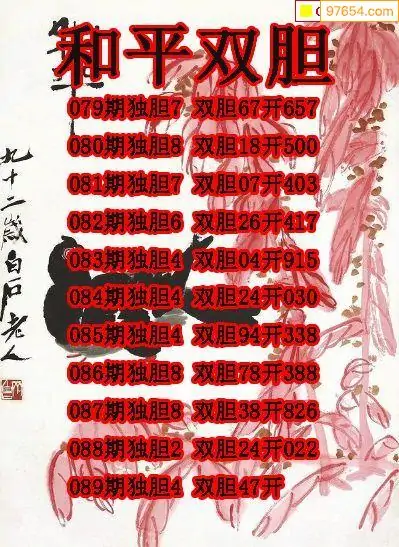 97654.com
和平双胆
079期独胆7 双胆67开657
080期独胆8 双胆18开500
081期独胆7 双胆07开403
082期独胆6 双胆26开417
083期独胆4 双胆04开915
084期独胆4 双胆24开030
085期独胆4 双胆94开338
086期独胆8 双胆78开388
087期独胆8 双胆38开826
088期独胆2 双胆24开022
089期独胆4 双胆47开
九十二岁白石老人